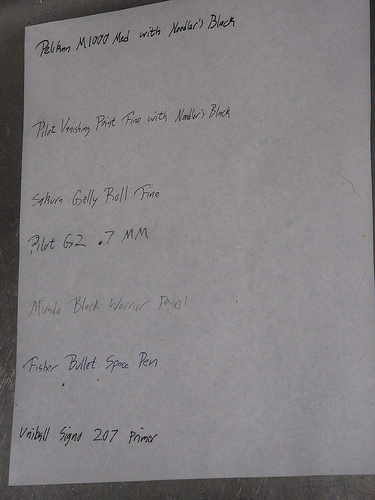 Pelikan M1000 Med with Noodler's Black
Pilot Vanishing Point Fine with Noodler's Black
Sakura Gelly Roll Fine
Pilot G2 .7 MM
Mirado Black Warrior Pencil
Fisher Bullet Space Pen
Uniball Signo 207 Primer